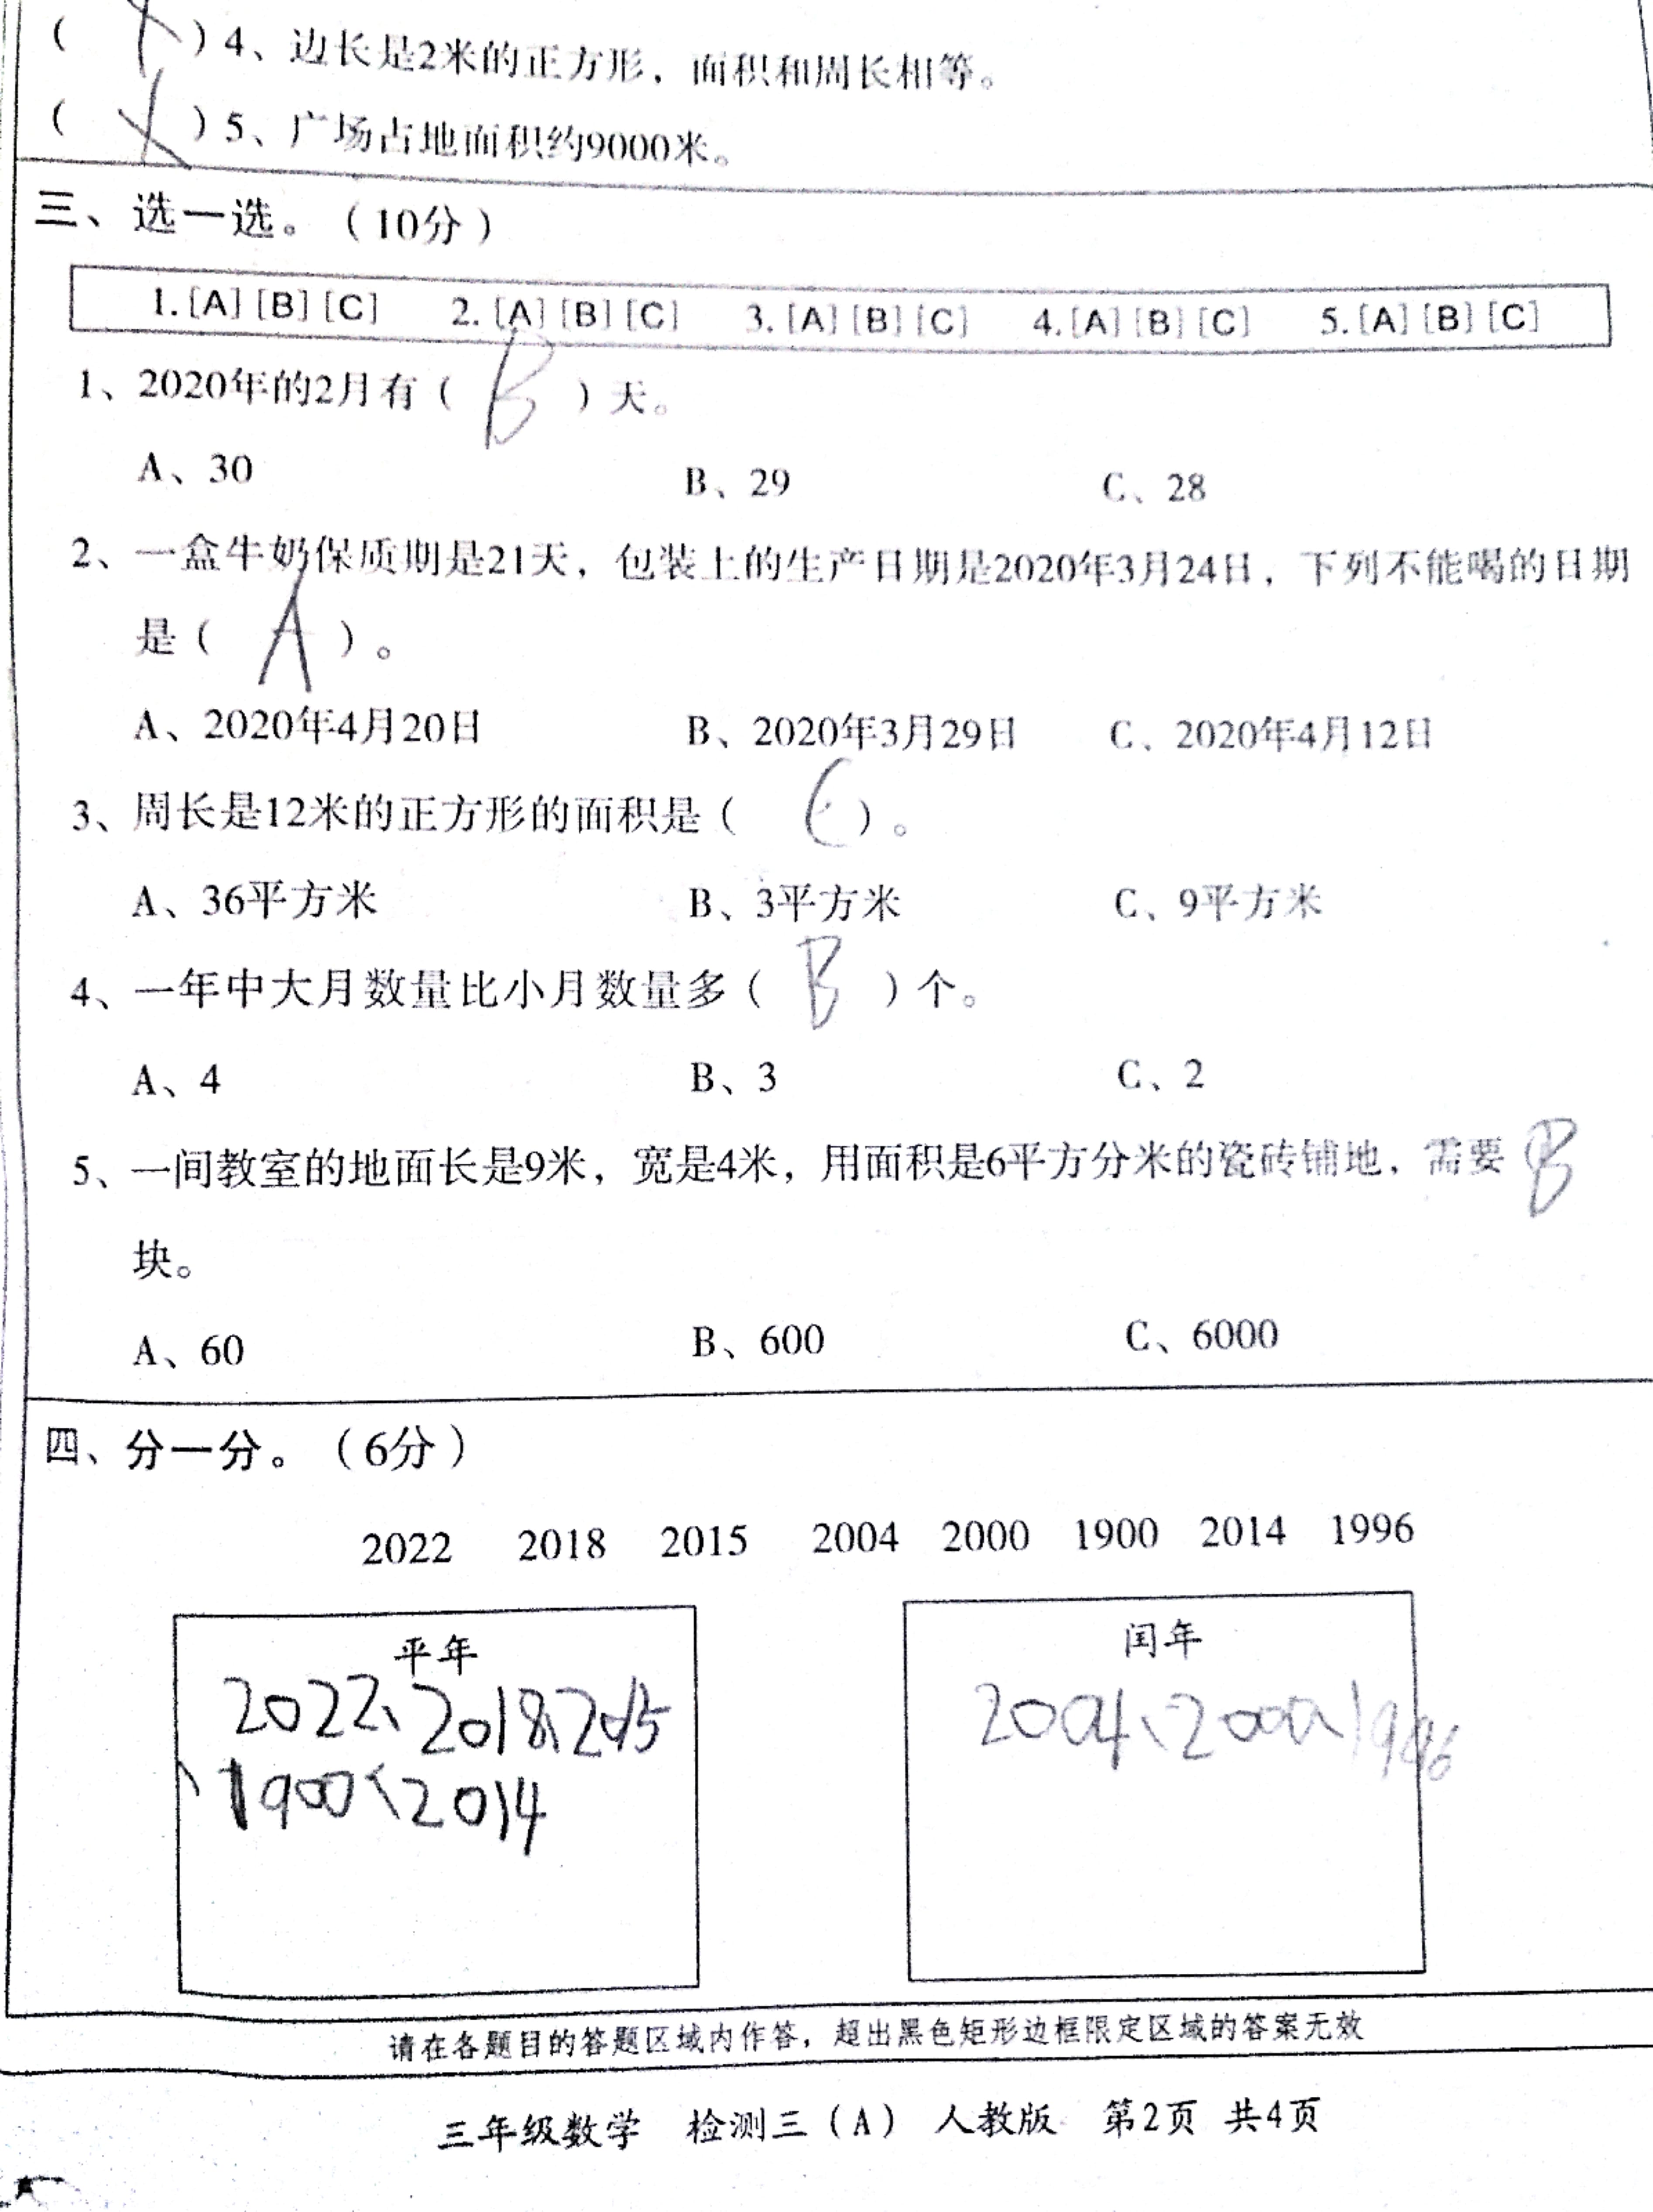 ( X ) 4、边长是2米的正方形，面积和周长相等。
( X ) 5、广场占地面积约9000米。
三、选一选。（10分）
1.[A] [B] [C] 2.[A] [B] [C] 3.[A] [B] [C] 4.[A] [B] [C] 5.[A] [B] [C]
1、2020年的2月有（ B ）天。
A、30 B、29 C、28
2、一盒牛奶保质期是21天，包装上的生产日期是2020年3月24日，下列不能喝的日期
是（ A ）。
A、2020年4月20日 B、2020年3月29日 C、2020年4月12日
3、周长是12米的正方形的面积是（ C ）。
A、36平方米 B、3平方米 C、9平方米
4、一年中大月数量比小月数量多（ B ）个。
A、4 B、3 C、2
5、一间教室的地面长是9米，宽是4米，用面积是6平方分米的瓷砖铺地，需要 B
块。
A、60 B、600 C、6000
四、分一分。（6分）
2022 2018 2015 2004 2000 1900 2014 1996
平年 闰年
2022、2018、2015 2004、2000、1996
、1900、2014
请在各题目的答题区域内作答，超出黑色矩形边框限定区域的答案无效
三年级数学 检测三（A） 人教版 第2页 共4页